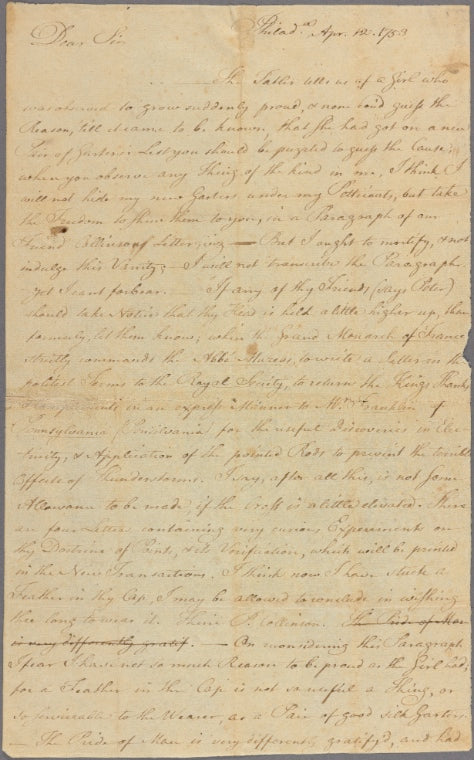 Philad.a Apr. 12. 1753
Dear Sir
The Tatler tells us of a Girl who
was observed to grow suddenly proud, & none cou'd guess the
Reason, till it came to be known, that she had got on a new
Pair of Garters. Lest you should be puzzled to guess the Cause,
when you observe any Thing of the kind in me, I think I
will not hide my new Garters under my Petticoats, but take
the Freedom to shew them to you, in a Paragraph of our
Friend Collinson's Letter, viz. — But I ought to mortify, & not
indulge this Vanity; — I will not transcribe the Paragraph.
— yet I can't forbear. If any of thy Friends (says Peter)
should take Notice that thy Head is held a little higher up than
formerly, let them know; when the Grand Monarch of France
strictly commands the Abbé Mazeas, to write a Letter in the
politest Terms to the Royal Society, to return the Kings Thanks
& Compliments in an express Manner to Mr. Franklin of
Pennsylvania (Pensilvania) for the useful Discoveries in Elec-
tricity, & Application of the pointed Rods to prevent the terrible
Effects of Thunderstorms. I say, after all this, is not some
Allowance to be made, if the Crest is a little elevated. There
are four Letters containing very curious Experiments on
thy Doctrine of Points, & its Verification, which will be printed
in the New Transactions. I think now I have stuck a
Feather in thy Cap, I may be allowed to conclude in wishing
thee long to wear it. Thine P. Collinson. The Pride of Man
is very differently gratif. — On reconsidering this Paragraph,
I fear I have not so much Reason to be proud as the Girl had;
for a Feather in the Cap is not so useful a Thing, or
so serviceable to the Wearer, as a Pair of good silk Garters.
— The Pride of Man is very differently gratify'd, and had